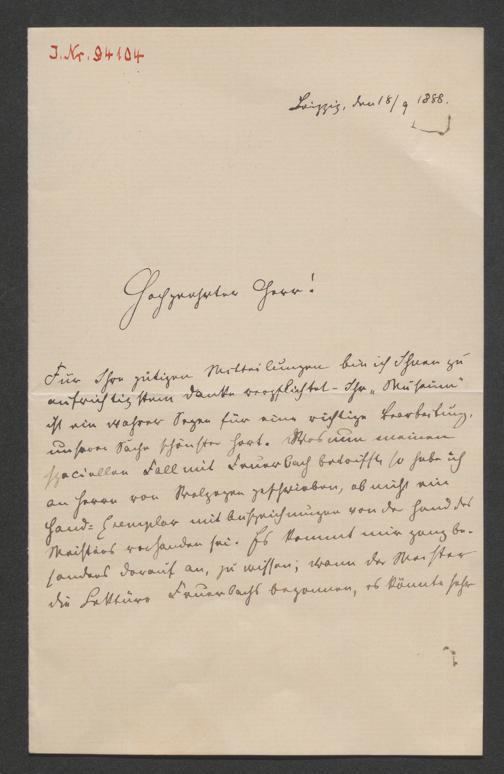 J. Nr. 94104
Leipzig, den 18/9 1888.
Hochgeehrter Herr!
Für Ihre gütigen Mitteilungen bin ich Ihnen zu
aufrichtigstem Danke verpflichtet - Ihr „Museum“
ist ein wahrer Segen für eine richtige Bearbeitung,
unserer Sache schönster Hort. Was nun meinen
speciellen Fall mit Feuerbach betrifft, so habe ich
an Herrn von Wolzogen geschrieben, ob nicht ein
Hand-Exemplar mit Aufzeichnungen von der Hand des
Meisters vorhanden sei. Es kommt mir ganz be-
sonders darauf an, zu wissen, wann der Meister
die Lektüre Feuerbachs begonnen, es könnte sehr